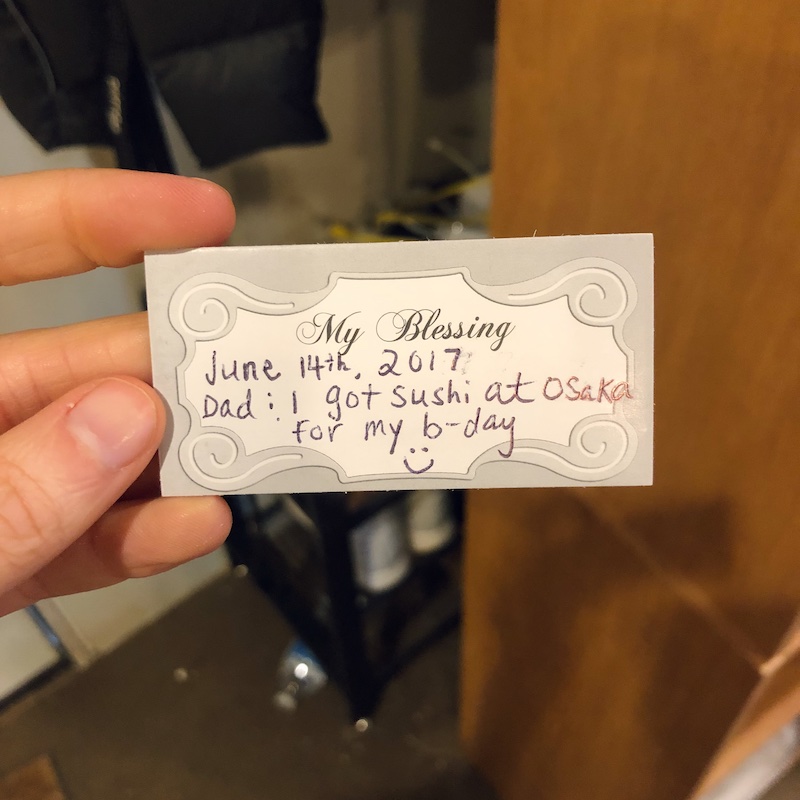 My Blessing
June 14th, 2017
Dad: I got sushi at Osaka
for my b-day